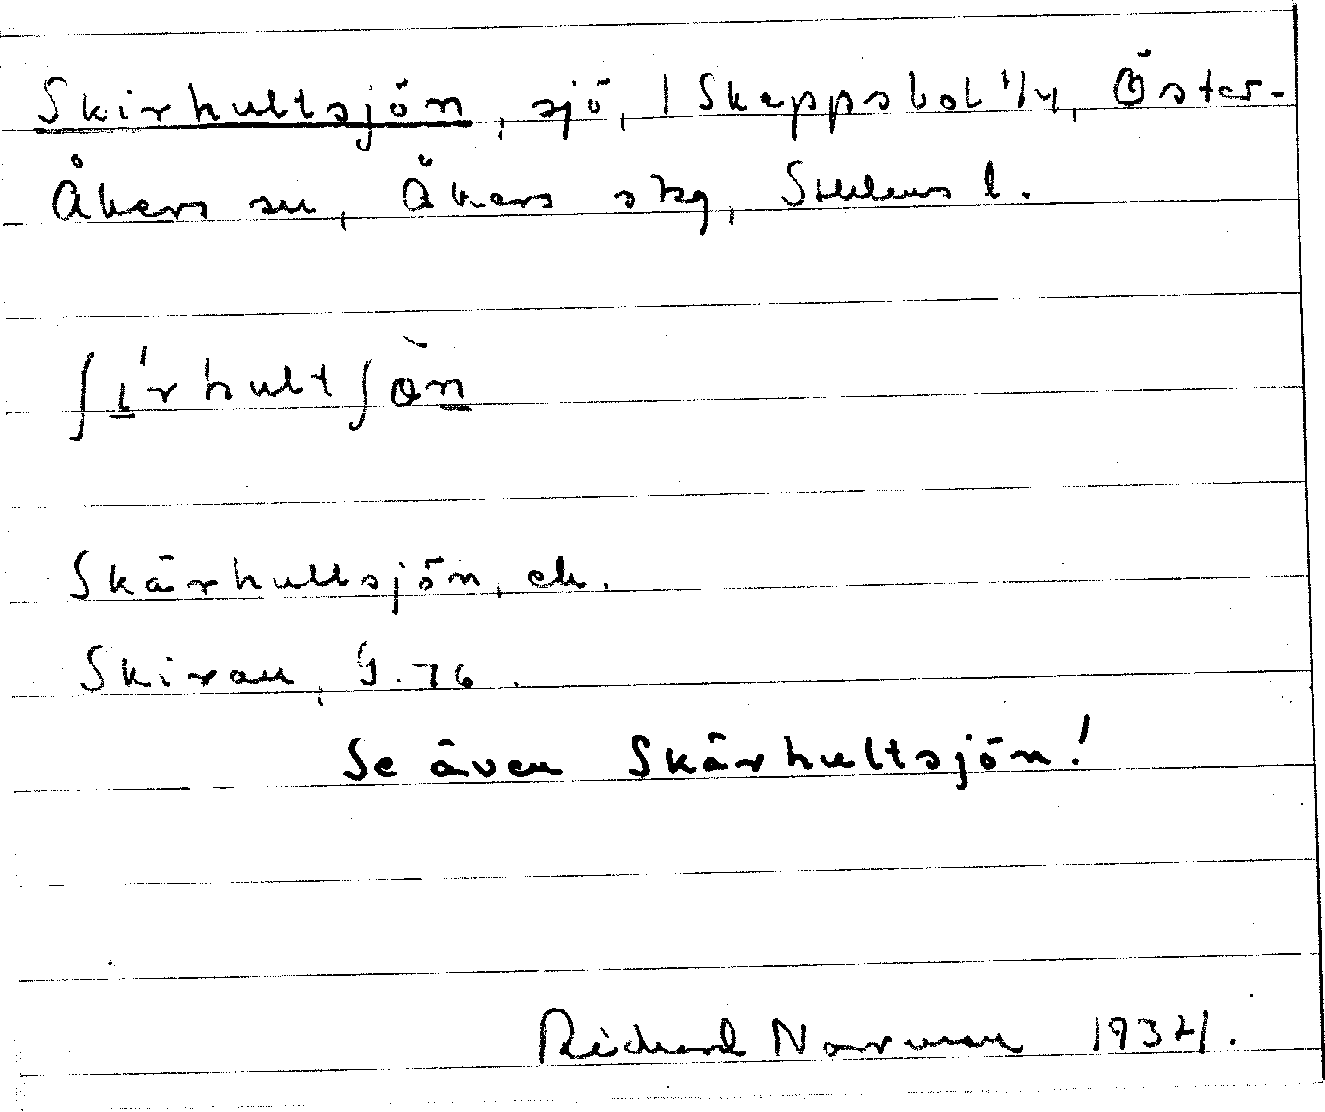 Skirhultsjön, sjö, 1 Skeppsbol 1/4, Öster-
Åkers sn, Åkers skg, Sthlms l.
ʃi̲ʹrhultʃö̀n̲
Skärhultsjön, ek.
Skiran, G. 76.
Se även Skärhultsjön!
Richard Norrman 1934.